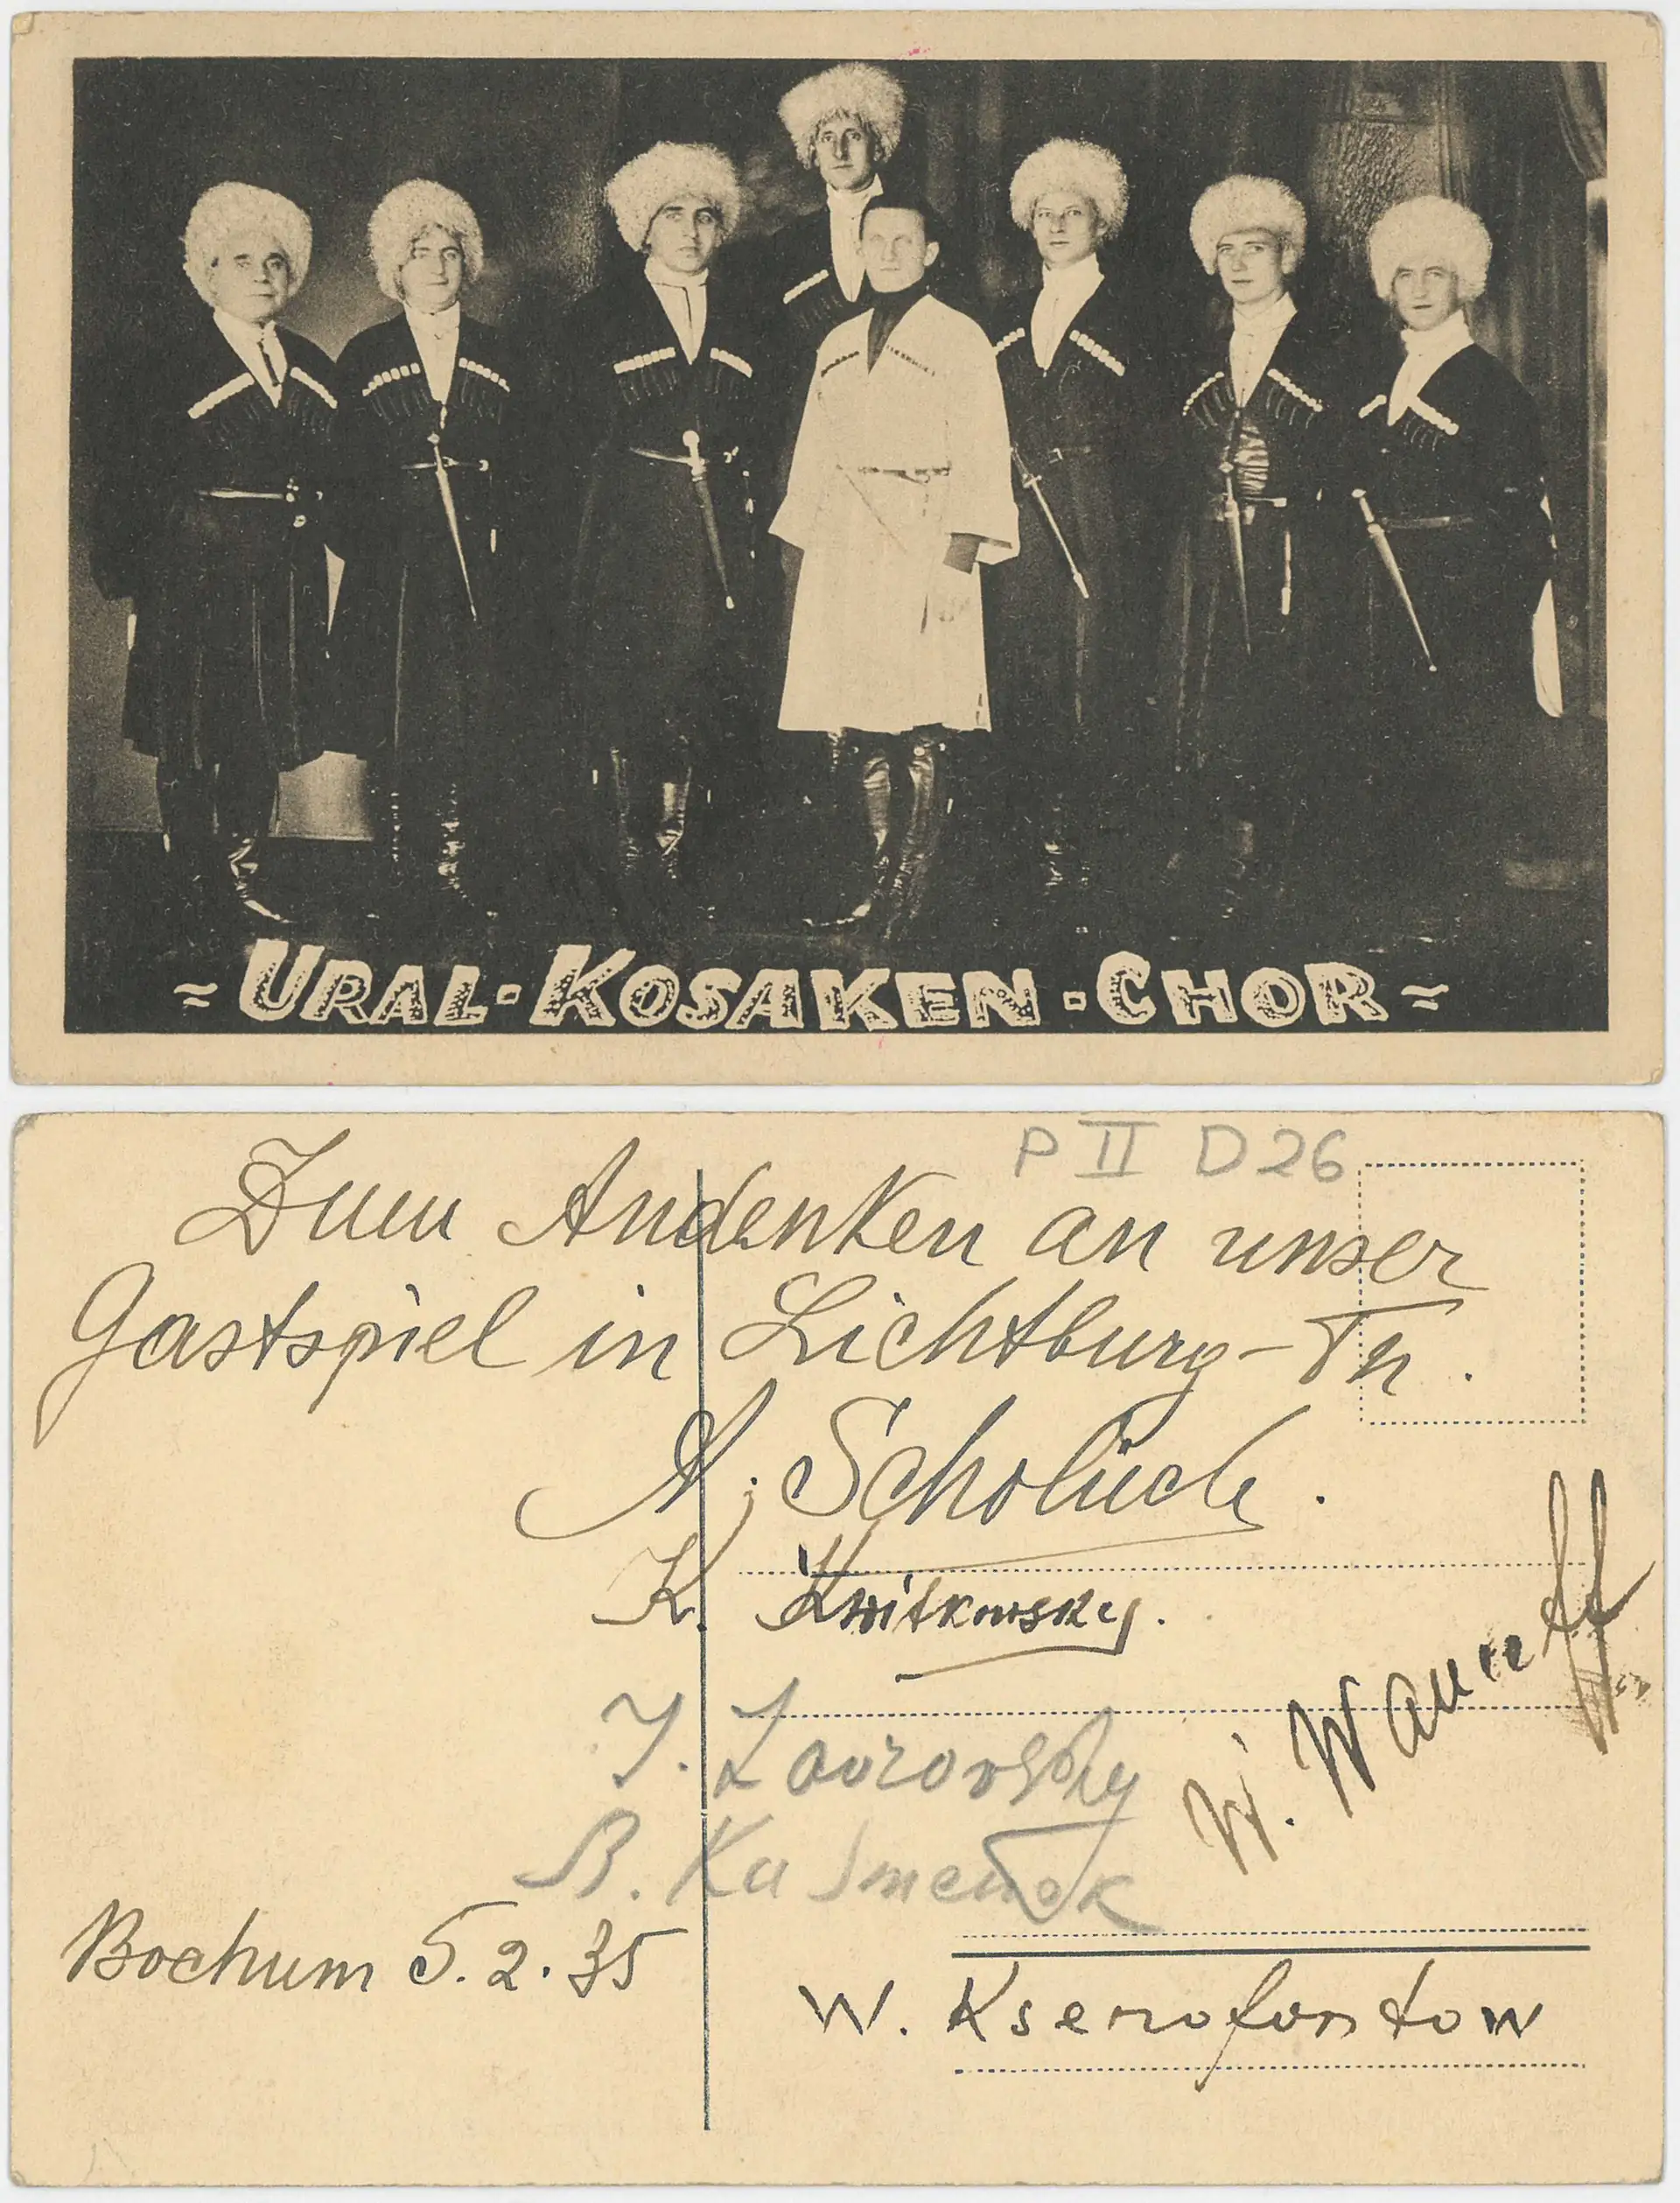 ≈ URAL-KOSAKEN-CHOR ≈
P II D 26
Zum Andenken an unser
Gastspiel in Lichtburg-Th.
A. Scholuch.
K. Kwitkowsky.
J. Lavrovsky
W. Waneeff
B. Kusmenok
Bochum 5.2.35
W. Ksenofontow